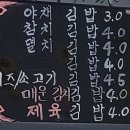 야채 김밥 3.0
참치 김밥 4.0
멸치 김밥 4.0
치즈 소고기 김밥 4.5
매운 김치 김밥 4.0
제육 김밥 4.0